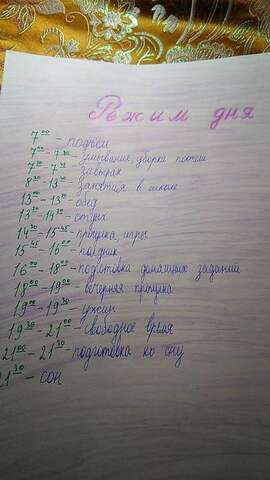 Режим дня
7⁰⁰ - подъём
7⁰⁰ - 7³⁰ - умывание, уборка постели
7³⁰ - 7⁴⁵ - завтрак
8³⁰ - 13⁰⁰ - занятия в школе
13⁰⁰ - 13³⁰ - обед
13³⁰ - 14³⁰ - отдых
14³⁰ - 15⁴⁵ - прогулка, игры
15⁴⁵ - 16⁰⁰ - полдник
16⁰⁰ - 18⁰⁰ - подготовка домашних заданий
18⁰⁰ - 19⁰⁰ - вечерняя прогулка
19⁰⁰ - 19³⁰ - ужин
19³⁰ - 21⁰⁰ - свободное время
21⁰⁰ - 21³⁰ - подготовка ко сну
21³⁰ - сон